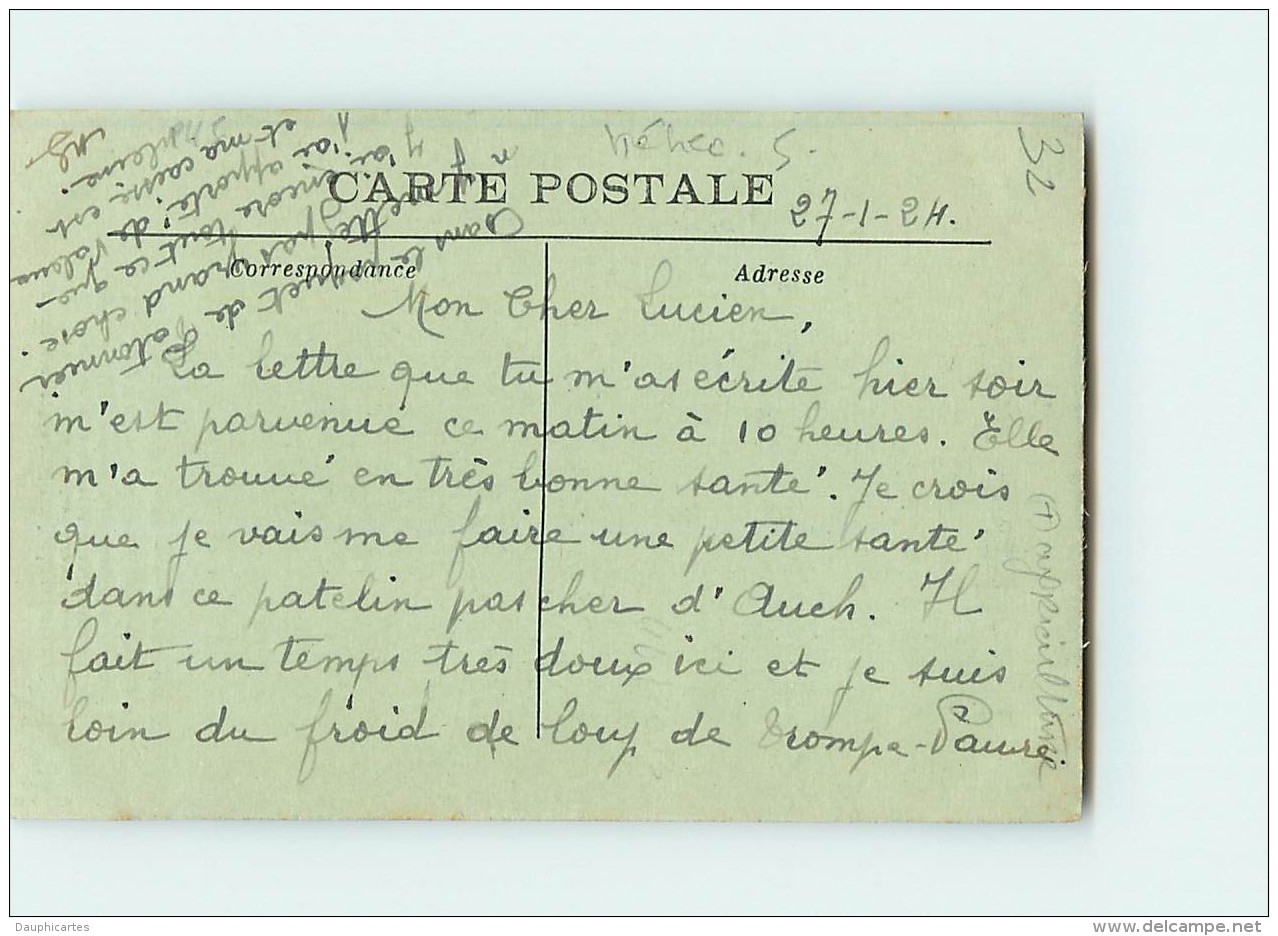 32
CARTE POSTALE
27-1-24.
Correspondance
Adresse
Mon Cher Lucien,
La lettre que tu m'as écrite hier soir
m'est parvenue ce matin à 10 heures. Elle
m'a trouvé en très bonne santé. Je crois
que je vais me faire une petite santé
dans ce patelin pas cher d'Auch. Il
fait un temps très doux ici et je suis
loin du froid de loup de Trompe-Pauvre
Dans le paquet de
pas grand chose.
encore tout ce que
apporté de
et ma caisse est
pleine.
Dauphicartes
www.delcampe.net